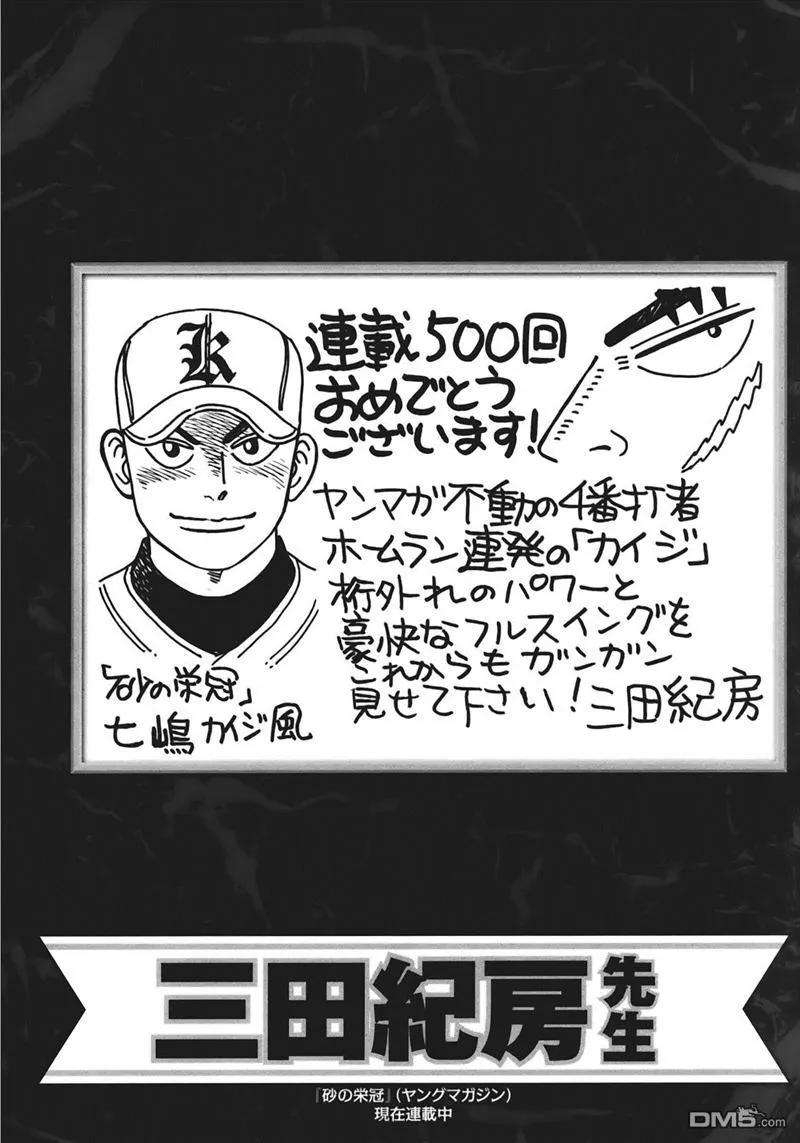 K
連載500回
おめでとう
ございます!
ヤンマガ不動の4番打者
ホームラン連発の「カイジ」
桁外れのパワーと
豪快なフルスイングを
これからもガンガン
見せて下さい!三田紀房
「砂の栄冠」
七嶋カイジ風
三田紀房先生
『砂の栄冠』(ヤングマガジン)
現在連載中
DM5.com